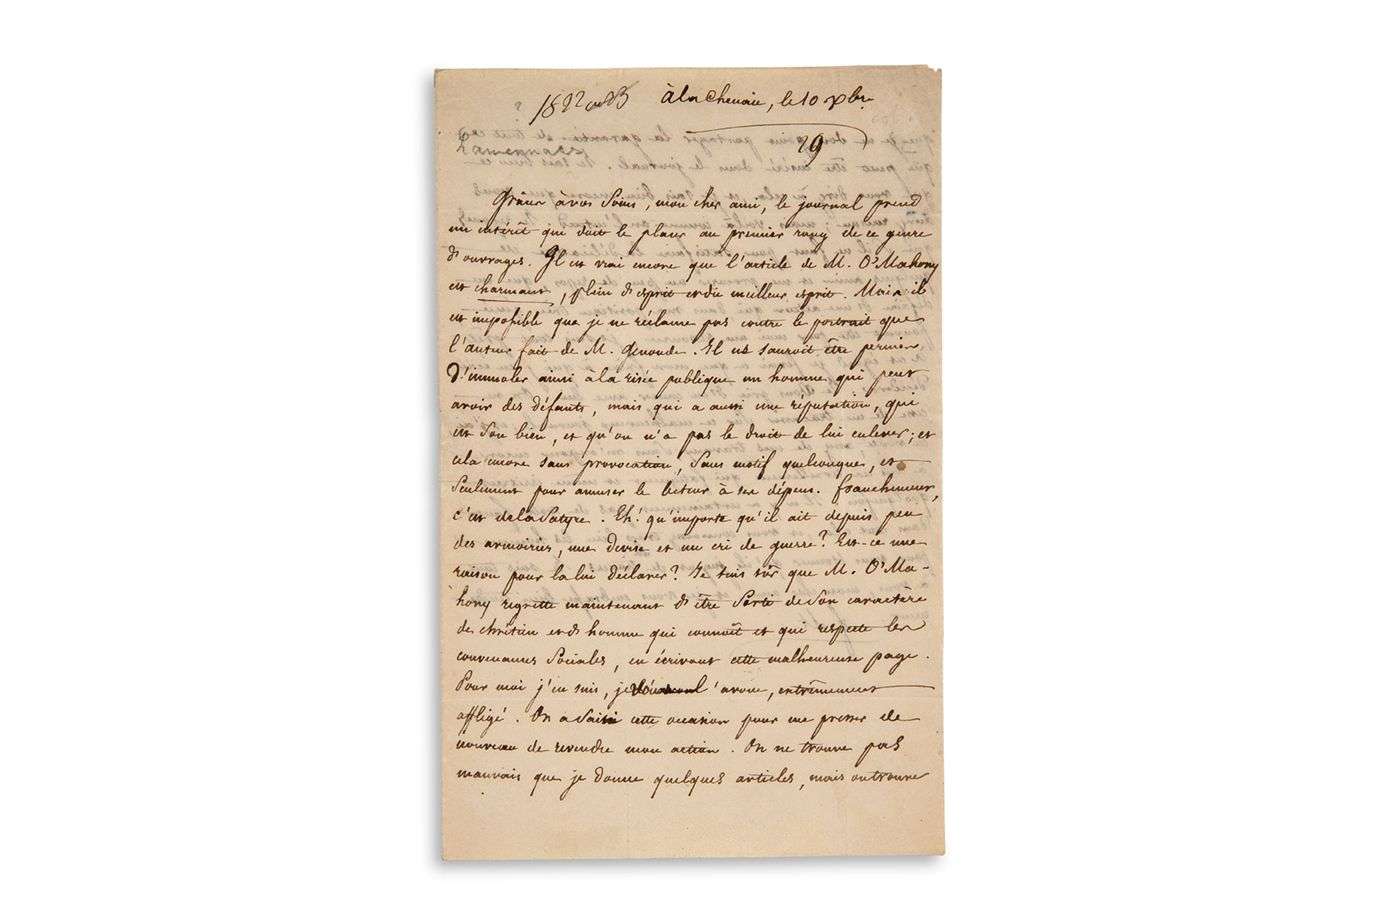 1822 ou 23 à la chenaie, le 10 xbre
29
Lamennais
Grâces à vos soins, mon cher ami, le journal prend
un intérêt qui doit le placer au premier rang de ce genre
d'ouvrages. Il est vrai encore que l'article de M. O'Mahony
est charmant, plein d'esprit et du meilleur esprit. Mais il
est impossible que je ne réclame pas contre le portrait que
l'auteur fait de M. Genoude. Il ne sauroit être permis
d'immoler ainsi à la risée publique un homme qui peut
avoir des défauts, mais qui a aussi une réputation, qui
est son bien, et qu'on n'a pas le droit de lui enlever; et
cela encore sans provocation, sans motif quelconque, et
seulement pour amuser le lecteur à ses dépens. franchement,
c'est de la satyre. Eh! qu'importe qu'il ait depuis peu
des armoiries, une devise et un cri de guerre? Est-ce une
raison pour la lui déclarer? Je suis sûr que M. O'Ma-
hony regrette maintenant d'être sorti de son caractère
de chrétien et d'homme qui connoît et qui respecte les
convenances sociales, en écrivant cette malheureuse page.
Pour moi j'en suis, je l'avoue, extrêmement
affligé. On a saisi cette occasion pour me presser de
nouveau de revendre mon action. On ne trouve pas
mauvais que je donne quelques articles, mais on trouve